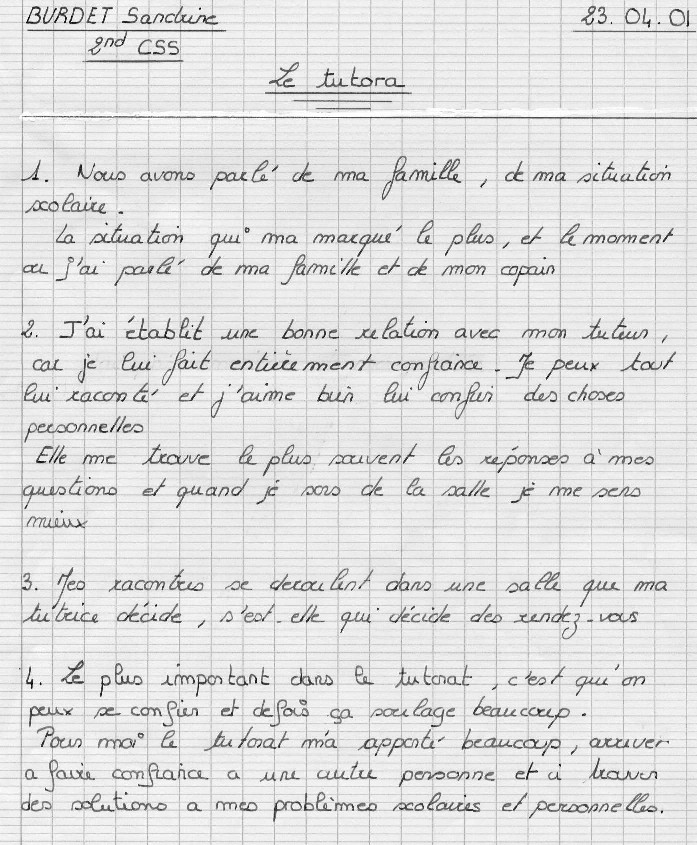 BURDET Sandrine 23.04.01
2nd CSS
Le tutora
1. Nous avons parlé de ma famille, de ma situation
scolaire.
La situation qui ma marqué le plus, et le moment
ou j'ai parlé de ma famille et de mon copain
2. J'ai établit une bonne relation avec mon tuteur,
car je lui fait entièrement confiance. Je peux tout
lui raconté et j'aime bien lui confier des choses
personnelles
Elle me trouve le plus souvent les réponses à mes
questions et quand je sors de la salle je me sens
mieux
3. Mes racontres se deroulent dans une salle que ma
tutrice décide, s'est-elle qui décide des rendez-vous
4. Le plus important dans le tutorat, c'est qu'on
peux se confier et defois ça soulage beaucoup.
Pour moi le tutorat m'a apporté beaucoup, arriver
a faire confiance a une autre personne et à trouver
des solutions a mes problèmes scolaires et personnelles.